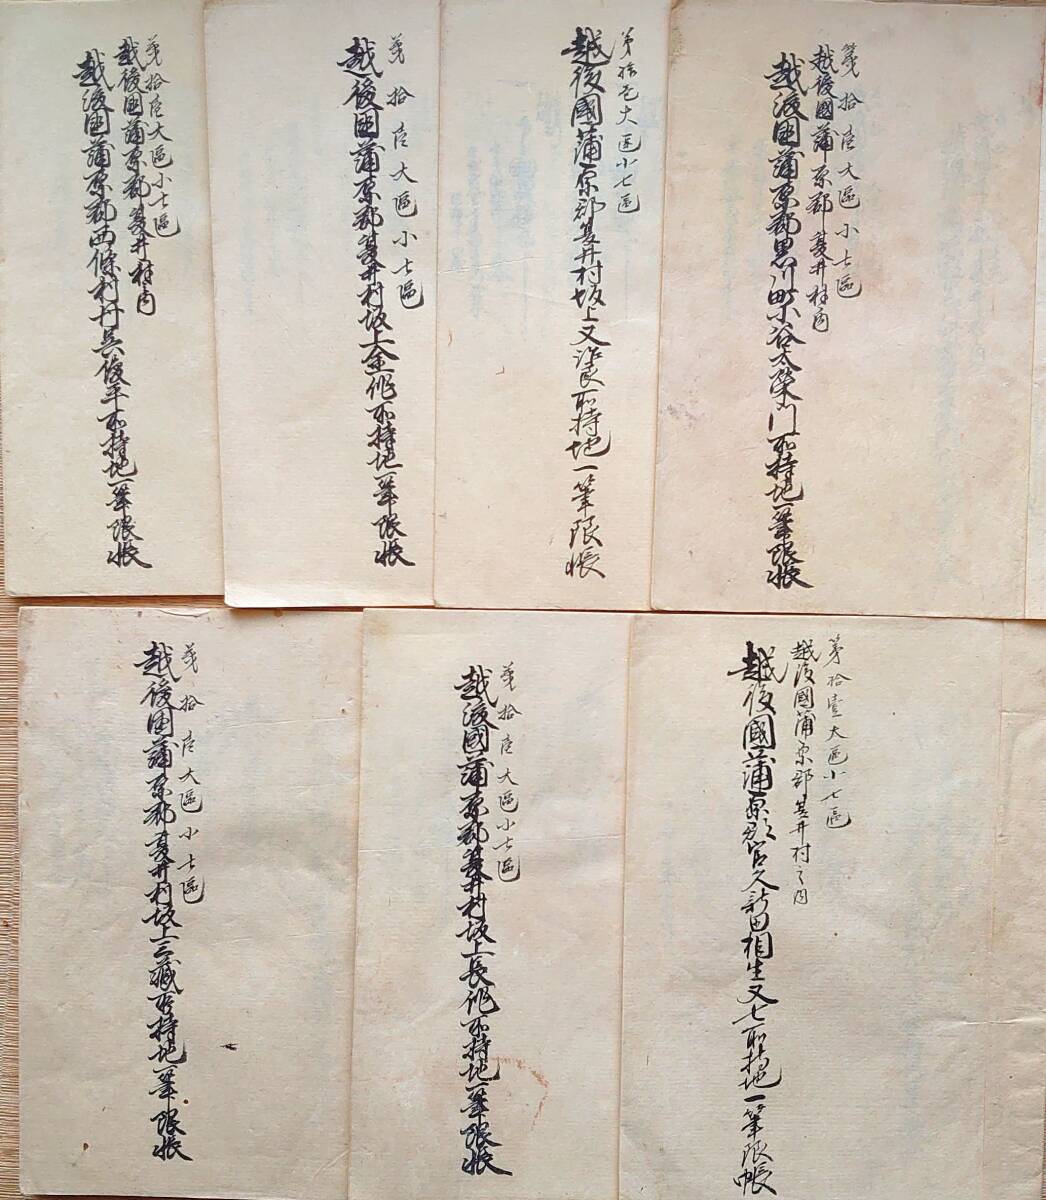 第拾壱大區小七區
越後國蒲原郡夏井村内
越後國蒲原郡黒川町小谷太榮門所持地一筆限帳
第拾壱大區小七區
越後國蒲原郡夏井村坂上又所持地一筆限帳
第拾壱大區小七區
越後國蒲原郡夏井村坂上金作所持地一筆限帳
第拾壱大區小七區
越後國蒲原郡夏井村内
越後國蒲原郡西條村平所持地一筆限帳
第拾壹大區小七區
越後國蒲原郡夏井村之内
越後國蒲原郡宮久新田相生又七所持地一筆限帳
第拾壱大區小七區
越後國蒲原郡夏井村坂上長作所持地一筆限帳
第拾壱大區小七區
越後國蒲原郡夏井村坂上三藏所持地一筆限帳